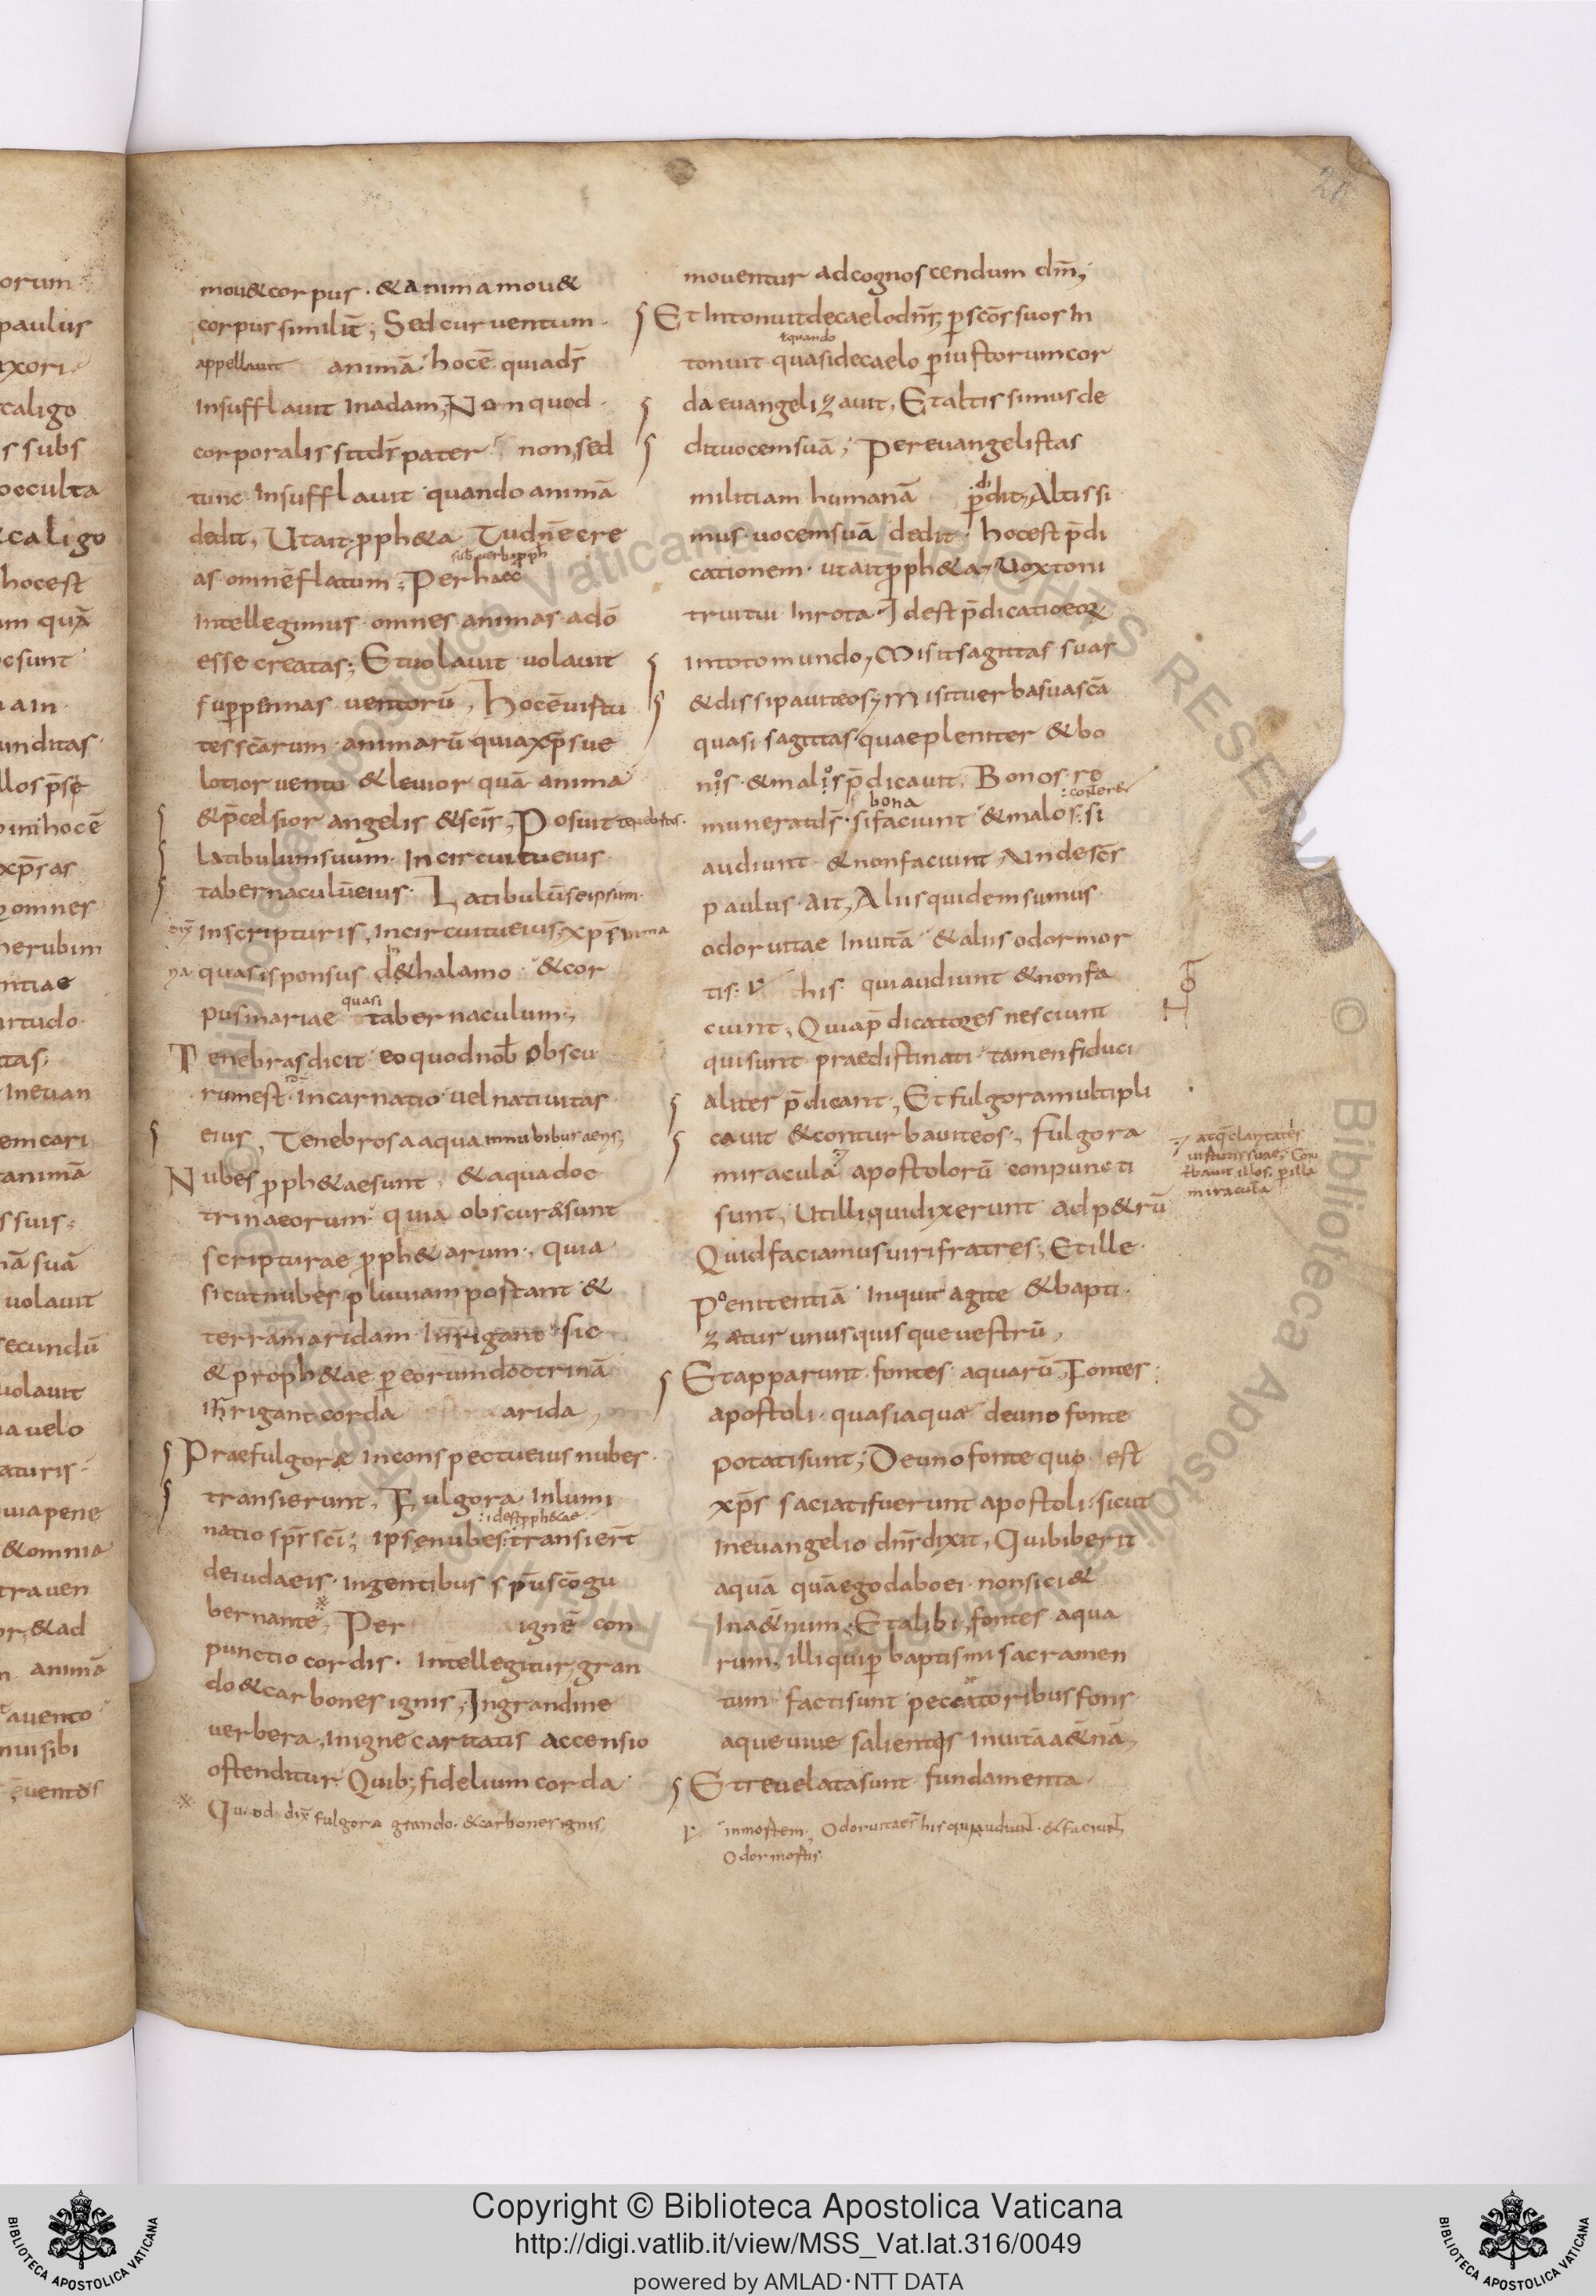 mou&corpus · &animamou&
corpus similit̄; Sed cur uentum ·
appellauit animā hoc ē quia ds̄
insufflauit in adam; Non quod ·
corporalis sit ds̄ pater non, sed
tunc insufflauit quando animā
dedit, Ut ait pph&a Tu dn̄e cre
sub̄ uerbi pph
as omnē flatum; Per haec
intellegimus omnes animas a dō
esse creatas; Et uolauit uolauit
sup pennas uentorū, hoc ē uirtu
tes scārum animarū quia xp̄s ue
lotior uento & leuior quā anima
& p̄celsior angelis & scīs, Posuit tenebras ·
latibulum suum · In circuitu eius ·
tabernaculū eius · Latibulū seipsum ·
dix̄ in scripturis, in circuitu eius, xp̄s in ma
na quasi sponsus d& halamo · & cor
quasi
pus mariae tabernaculum;
Tenebras dicit eo quod nob̄ obscu
rum est · incarnatio uel natiuitas
eius, Tenebrosa aqua in nubibus aeris,
Nubes pph&ae sunt, & aqua doc
trina eorum quia obscurae sunt
scripturae pph&arum, quia
sicut nubes pluuiam portant &
terram aridam inrigant sic
& proph&ae p eorum doctrinā
inrigant corda arida,
Prae fulgorae in conspectu eius nubes ·
transierunt, Fulgora inlumi
: id est pph&ae
natio sps̄ scī; ipse nubes : transier̄t
de iudaeis · in gentibus sp̄u scō gu
bernante, Per ignē con
punctio cordis · intellegitur, gran
do & carbones ignis, In grandine
uerbera, in igne caritatis accensio
ostenditur Quib; fidelium corda
Quod dix̄ fulgora grando · & carbones ignis,
mouentur ad cognoscendum dm̄,
Et intonuit de caelo dn̄s, p scōs suos in
ł quando
tonuit quasi de caelo p iustorum cor
da euangelizauit, Et altissimus de
dit uocem suā; Per euangelistas
militiam humanā p̄dit, Altissi
mus uocem suā dedit · hoc est p̄di
cationem · ut ait pph&a, Uox toni
trui tui in rota · Id est p̄dicatio eoꝝ
in toto mundo, Misit sagittas suas
& dissipauit eos, Misit uerba sua scā
quasi sagittas quae pleniter & bo
nis · & malis p̄dicauit, Bonos re
bona
munerat ds̄ · si faciunt & malos : si
audiunt & non faciunt, Unde scs̄
paulus · ait, Aliis quidem sumus ·
odor uitae in uitā & aliis odor mor
tis : his · qui audiunt & non fa
ciunt, Quia p̄dicatores nesciunt
qui sunt praedistinati · tamen fiduci
aliter p̄dicant, Et fulgora multipli
cauit & conturbauit eos, Fulgora
miracula apostolorū conpuncti
sunt, Ut illi qui dixerunt ad p&rū
Quid faciamus uiri fratres; Et ille ·
Poenitentiā inquit agite & bapti ·
zetur unusquisque uestrū,
Et apparunt fontes aquarū, Fontes
apostoli · quasi aqua de uno fonte
potati sunt; De uno fonte quo est
xp̄s saciati fuerunt apostoli : sicut
in euangelio dn̄s dixit, Qui biberit
aquā quā ego dabo ei · non sici&
in a&̄num; Et alibi, fontes aqua
rum · illi qui p baptismi sacramen
tum facti sunt peccatoribus fons ·
aque uiue salientes in uitā a&̄nā,
Et reuelata sunt fundamenta ·
in mortem · Odor uitae : his qui audiunt · & faciunt,
Odor mortis ·
miracula
Copyright © Biblioteca Apostolica Vaticana
http://digi.vatlib.it/view/MSS_Vat.lat.316/0049
powered by AMLAD·NTT DATA